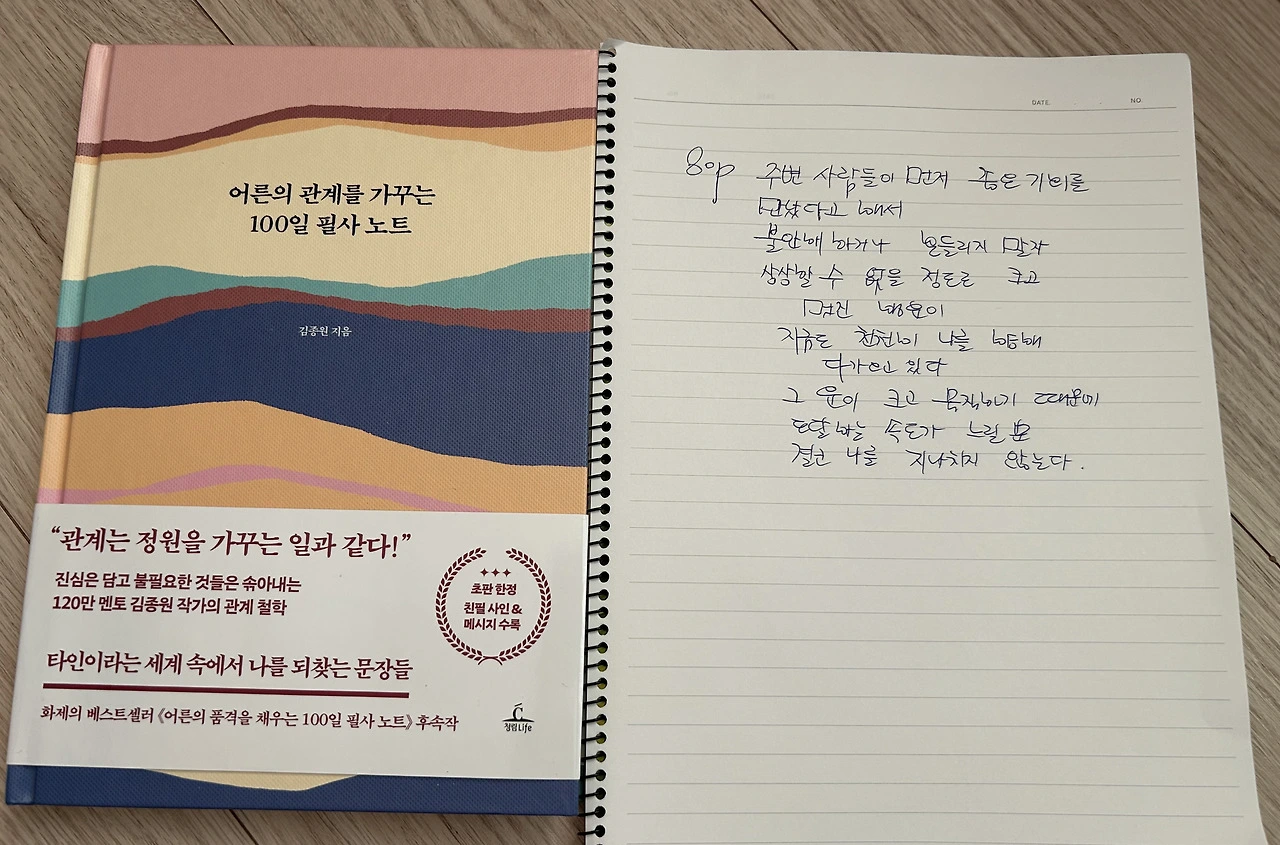 어른의 관계를 가꾸는
100일 필사 노트
김종원 지음
“관계는 정원을 가꾸는 일과 같다!”
진심은 담고 불필요한 것들은 솎아내는
120만 멘토 김종원 작가의 관계 철학
초판 한정
친필 사인 &
메시지 수록
타인이라는 세계 속에서 나를 되찾는 문장들
화제의 베스트셀러 《어른의 품격을 채우는 100일 필사 노트》 후속작
청림Life
DATE. NO.
80p 주변 사람들이 먼저 좋은 기회를
만났다고 해서
불안해 하거나 흔들리지 말자
상상할 수 없을 정도로 크고
멋진 행운이
지금도 천천히 나를 향해
다가오고 있다
그 운이 크고 묵직하기 때문에
도달하는 속도가 느릴 뿐
결코 나를 지나치지 않는다.